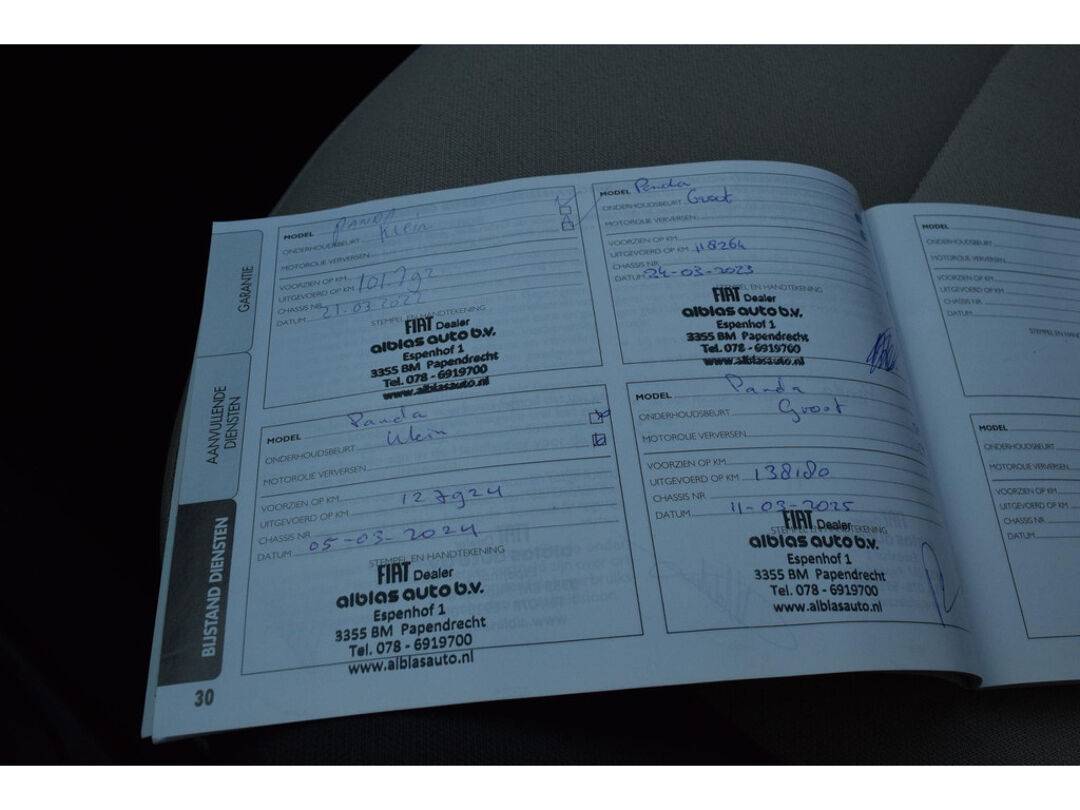 GARANTIE
AANVULLENDE
DIENSTEN
BIJSTAND DIENSTEN
30
MODEL PANDA
ONDERHOUDSBEURT Klein
MOTOROLIE VERVERSEN
VOORZIEN OP KM
UITGEVOERD OP KM 101.792
CHASSIS NR
DATUM 21-03-2022
STEMPEL EN HANDTEKENING
FIAT Dealer
alblas auto b.v.
Espenhof 1
3355 BM Papendrecht
Tel. 078 - 6919700
www.alblasauto.nl
MODEL Panda
ONDERHOUDSBEURT Groot
MOTOROLIE VERVERSEN
VOORZIEN OP KM
UITGEVOERD OP KM 118264
CHASSIS NR
DATUM 24-03-2023
STEMPEL EN HANDTEKENING
FIAT Dealer
alblas auto b.v.
Espenhof 1
3355 BM Papendrecht
Tel. 078 - 6919700
www.alblasauto.nl
MODEL Panda
ONDERHOUDSBEURT Klein
MOTOROLIE VERVERSEN
VOORZIEN OP KM
UITGEVOERD OP KM 127924
CHASSIS NR
DATUM 05-03-2024
STEMPEL EN HANDTEKENING
FIAT Dealer
alblas auto b.v.
Espenhof 1
3355 BM Papendrecht
Tel. 078 - 6919700
www.alblasauto.nl
MODEL Panda
ONDERHOUDSBEURT Groot
MOTOROLIE VERVERSEN
VOORZIEN OP KM
UITGEVOERD OP KM 138180
CHASSIS NR
DATUM 11-03-2025
STEMPEL EN HANDTEKENING
FIAT Dealer
alblas auto b.v.
Espenhof 1
3355 BM Papendrecht
Tel. 078 - 6919700
www.alblasauto.nl
MODEL
ONDERHOUDSBEURT
MOTOROLIE VERVERSEN
VOORZIEN OP KM
UITGEVOERD OP KM
CHASSIS NR
DATUM
STEMPEL EN HAND
MODEL
ONDERHOUDSBEURT
MOTOROLIE VERVERSEN
VOORZIEN OP KM
UITGEVOERD OP KM
CHASSIS NR
DATUM